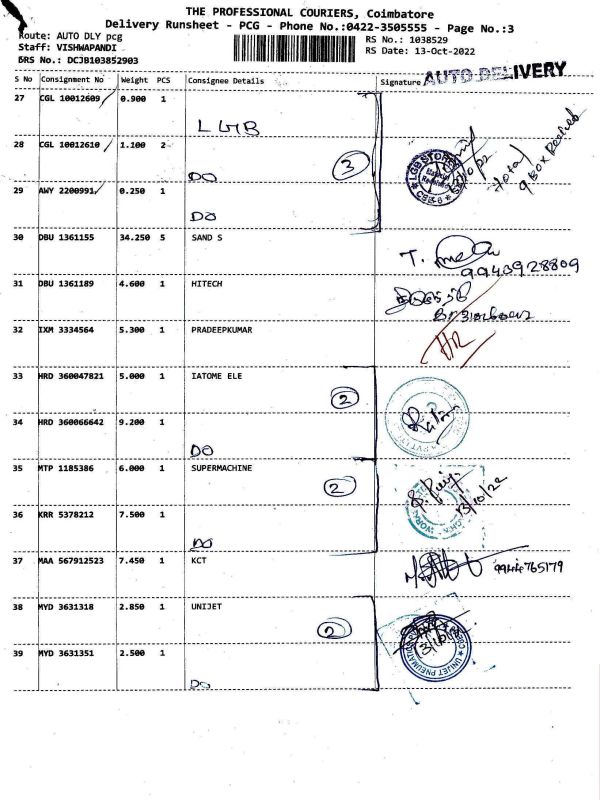 THE PROFESSIONAL COURIERS, Coimbatore
Delivery Runsheet - PCG - Phone No.:0422-3505555 - Page No.:3
Route: AUTO DLY pcg
RS No.: 1038529
Staff: VISHWAPANDI
RS Date: 13-Oct-2022
BRS No.: DCJB103852903
S No Consignment No Weight PCS Consignee Details Signature AUTO DELIVERY
27 CGL 10012609 0.900 1 LGB
28 CGL 10012610 1.100 2 DO
3
LGB STORES
Total 9 Box
29 AWY 2200991 0.250 1 DO
30 DBU 1361155 34.250 5 SAND S
9943928809
31 DBU 1361189 4.600 1 HITECH
32 IXM 3334564 5.300 1 PRADEEPKUMAR
33 HRD 360047821 5.000 1 IATOME ELE
2
34 HRD 360066642 9.200 1 DO
35 MTP 1185386 6.000 1 SUPERMACHINE
2
13/10/22
36 KRR 5378212 7.500 1 DO
37 MAA 567912523 7.450 1 KCT
38 MYD 3631318 2.850 1 UNIJET
2
UNIJET PNEUMATIC
39 MYD 3631351 2.500 1 DO